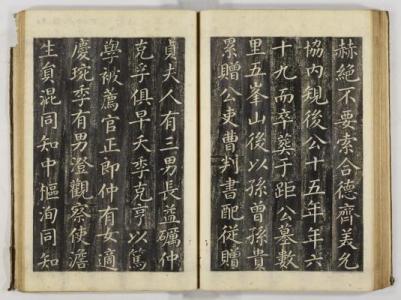 赫絶不要索合德齊美允
協内䂓後公十五年年六
十九而卒葬于距公墓數
里五峯山後以孫曾孫貴
累贈公吏曹判書配從贈
貞夫人有三男長益礪仲
克孚俱早夭季克亨以篤
學被薦官正郎仲有女適
慶琬季有男澄觀察使澹
生貟混同知中樞洵同知